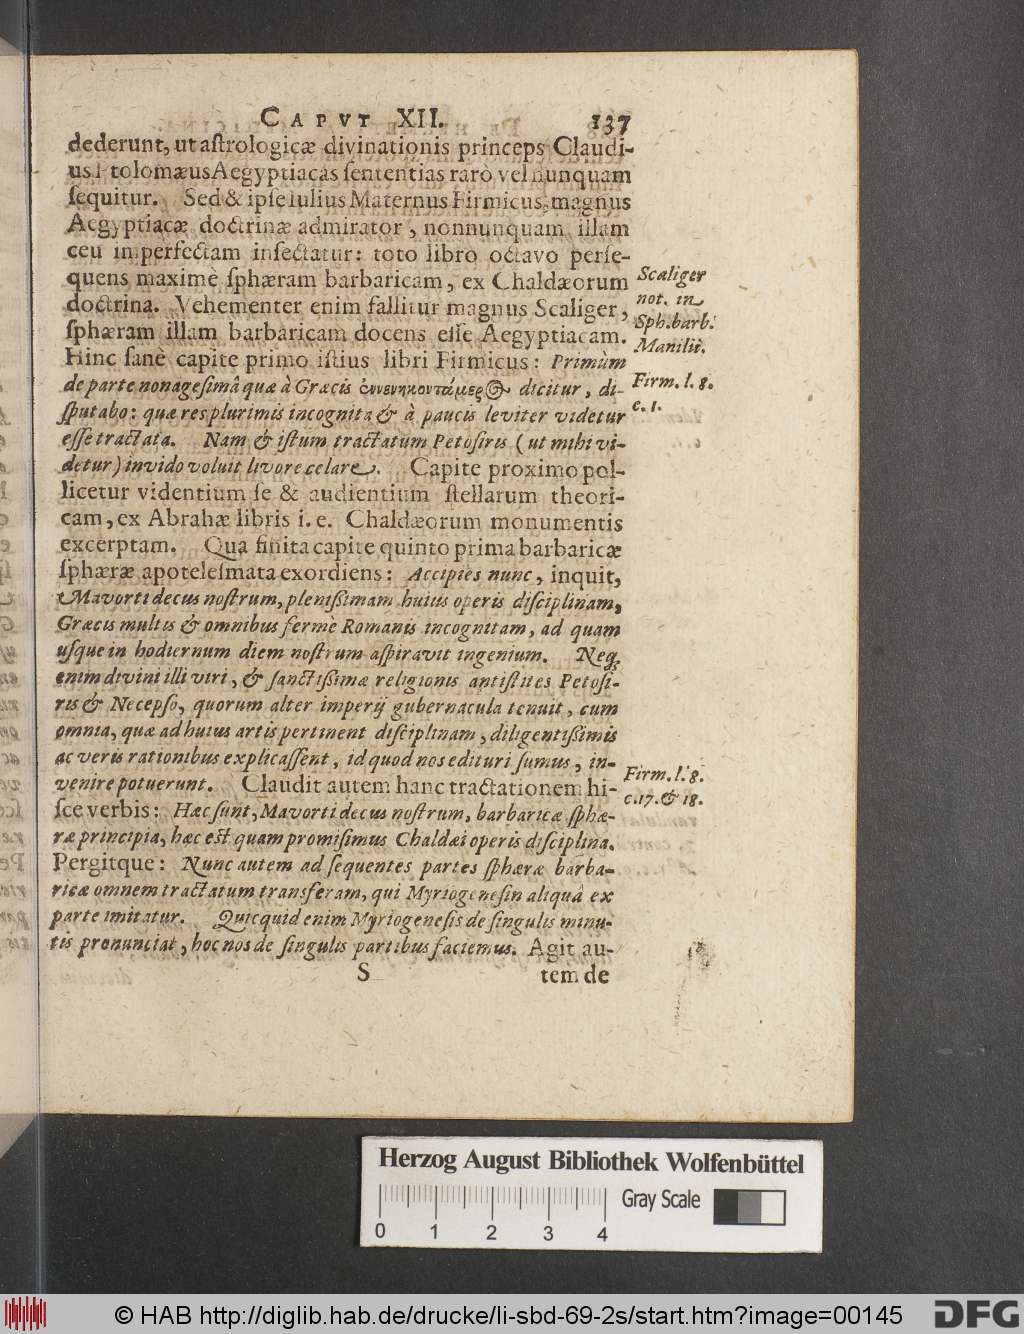 CAPVT XII. 137
dederunt, ut aſtrologicæ divinationis princeps Claudi-
us Ptolomæus Aegyptiacas ſententias rarò vel nunquam
ſequitur. Sed & ipſe Iulius Maternus Firmicus, magnus
Aegyptiacæ doctrinæ admirator, nonnunquam illam
ceu imperfectam inſectatur: toto libro octavo perſe-
quens maximè ſphæram barbaricam, ex Chaldæorum
doctrina. Vehementer enim fallitur magnus Scaliger,
ſphæram illam barbaricam docens eſſe Aegyptiacam.
Hinc ſanè capite primo iſtius libri Firmicus: Primùm
de parte nonageſimâ quæ à Græcis dicitur, di-
ſputabo: quæ res plurimis incognita & à paucis leviter videtur
eſſe tractata. Nam & iſtum tractatum Petoſiris (ut mihi vi-
detur) invido voluit livore celare. Capite proximo pol-
licetur videntium ſe & audientium ſtellarum theori-
cam, ex Abrahæ libris i. e. Chaldæorum monumentis
excerptam. Qua finita capite quinto prima barbaricæ
ſphæræ apoteleſmata exordiens: Accipies nunc, inquit,
Mavorti decus noſtrum, pleniſſimam huius operis diſciplinam,
Græcis multis & omnibus fermè Romanis incognitam, ad quam
uſque in hodiernum diem noſtrum aſpiravit ingenium. Neq;
enim divini illi viri, & ſanctiſſimæ religionis antiſtites Petoſi-
ris & Necepſo, quorum alter imperij gubernacula tenuit, cum
omnia, quæ ad huius artis pertinent diſciplinam, diligentiſſimis
ac veris rationibus explicaſſent, id quod nos edituri ſumus, in-
venire potuerunt. Claudit autem hanc tractationem hi-
ſce verbis: Hæc ſunt, Mavorti decus noſtrum, barbaricæ ſphæ-
ræ principia, hæc eſt quam promiſimus Chaldæi operis diſciplina.
Pergitque: Nunc autem ad ſequentes partes ſphæræ barba-
ricæ omnem tractatum transferam, qui Myriogeneſin aliquâ ex
parte imitatur. Quicquid enim Myriogeneſis de ſingulis minu-
tis pronunciat, hoc nos de ſingulis partibus faciemus. Agit au-
S tem de
Scaliger
not. in
Sph. barb.
Manilii.
Firm. l. 8.
c. 1.
Firm. l. 8.
c. 17. & 18.
Herzog August Bibliothek Wolfenbüttel
Gray Scale
0 1 2 3 4
© HAB http://diglib.hab.de/drucke/li-sbd-69-2s/start.htm?image=00145
DFG